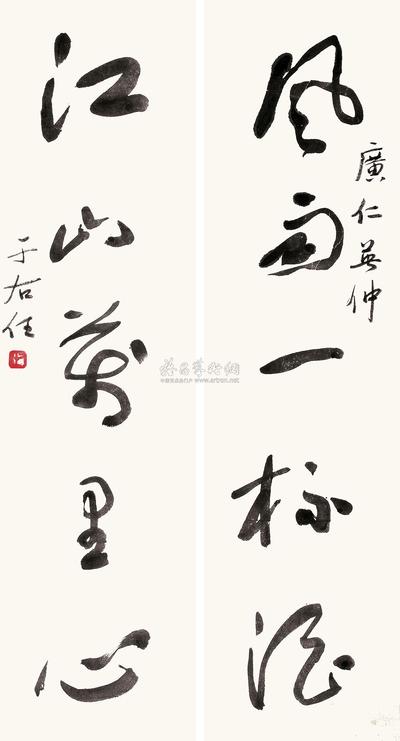 風雨一杯酒
廣仁英仲
江山萬里心
于右任
雅昌藝術網
www.artron.net